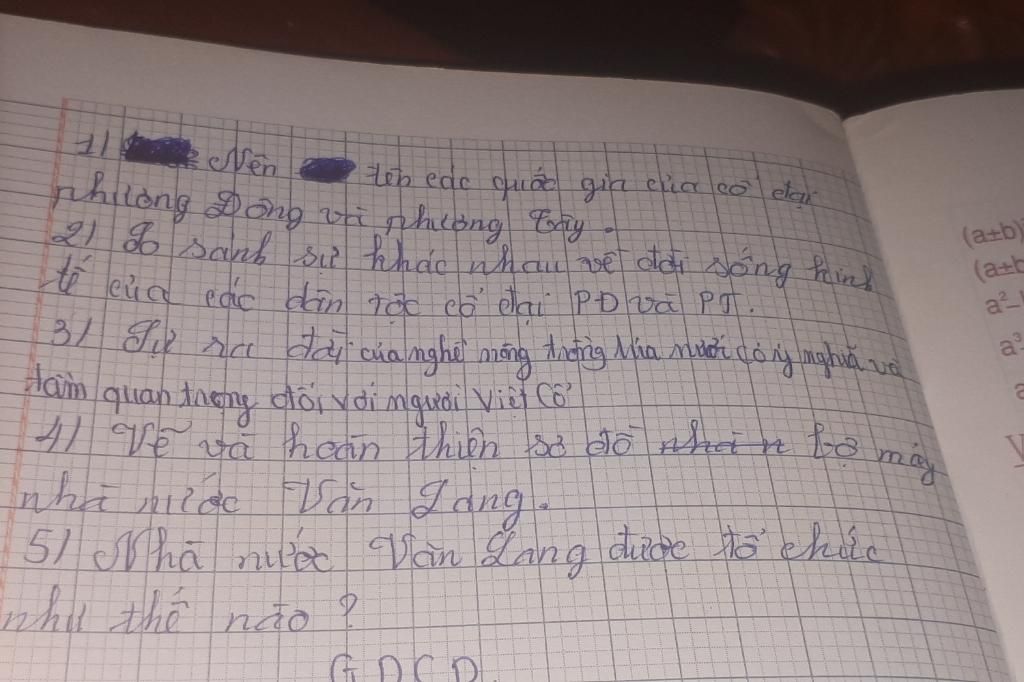 1) Nên tên các quốc gia của cổ đại
phương Đông và phương Tây.
2) So sánh sự khác nhau về đời sống kinh
tế của các dân tộc cổ đại PĐ và PT.
3) Sự ra đời của nghề nông trồng lúa nước có ý nghĩa và
tầm quan trọng đối với người Việt Cổ
4) Vẽ và hoàn thiện sơ đồ bộ máy
nhà nước Văn Lang.
5) Nhà nước Văn Lang được tổ chức
như thế nào ?
GDCD
(a±b)
(a±b
a²-
a³